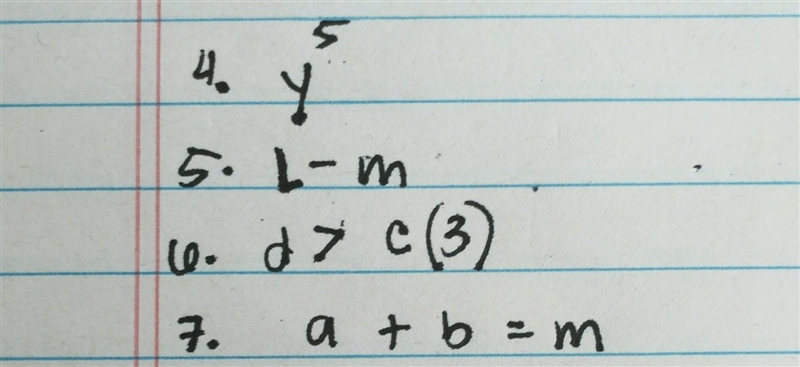 4. y⁵
5. L - m
6. d > c (3)
7. a + b = m